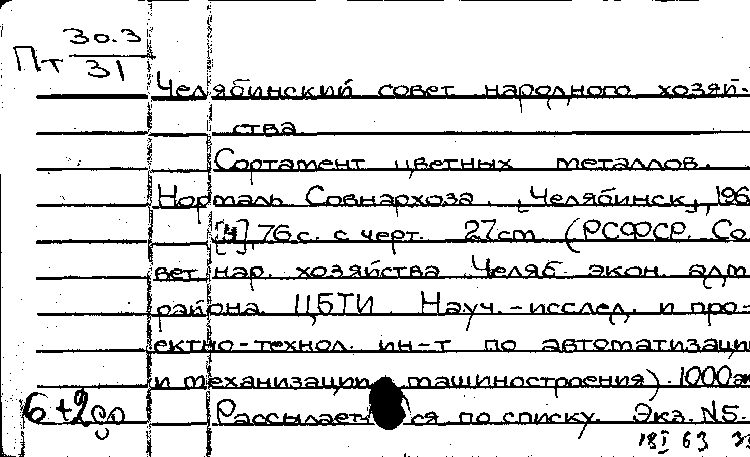 Пт 30.3
31
Челябинский совет народного хозяй-
ства.
Сортамент цветных металлов.
Нормаль Совнархоза. [Челябинск], 196
[4], 76 с. с черт. 27 cm (РСФСР. Со
вет нар. хозяйства Челяб. экон. адм
района. ЦБТИ. Науч.-исслед. и про-
ектно-технол. ин-т по автоматизации
и механизации машиностроения). 1000 эк
6+2
Рассылается по списку. Экз. N5-
18I 63